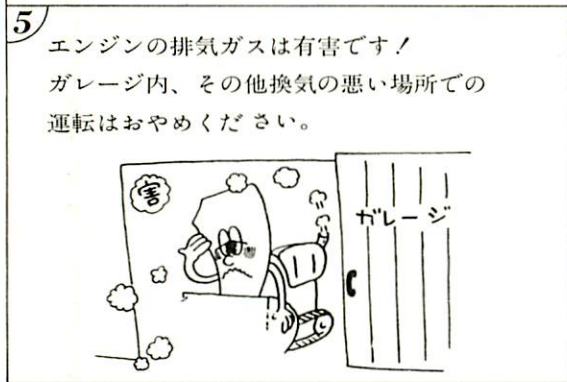 5
エンジンの排気ガスは有害です!
ガレージ内、その他換気の悪い場所での
運転はおやめください。
害
ガレージ